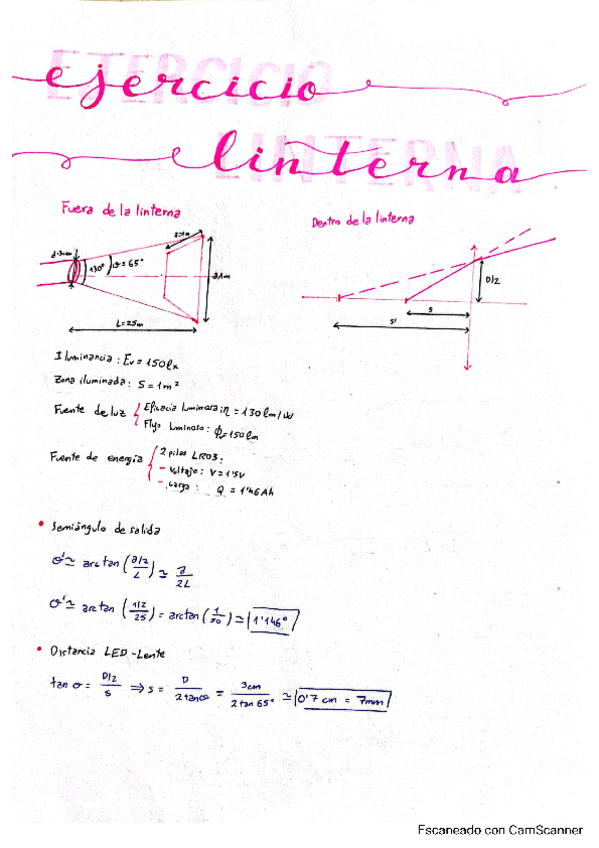 ejercicio
linterna
Fuera de la linterna
Dentro de la linterna
d=3cm
130°
σ=65°
a=1m
a=1m
L=25m
D/2
s
s'
Iluminancia: Ev = 150 lx
Zona iluminada: S = 1m²
Fuente de luz { Eficacia luminosa: η = 130 lm/W
Flujo luminoso: Φ = 150 lm
Fuente de energía { 2 pilas LR03:
- Voltaje: V = 1'5V
- carga: Q = 1'46 Ah
• Semiángulo de salida
σ' ≃ arctan (a/2 / L) ≃ a / 2L
σ' ≃ arctan (1/2 / 25) = arctan (1/50) ≃ 1'146°
• Distancia LED-Lente
tan σ = D/2 / s ⇒ s = D / 2 tan σ = 3cm / 2 tan 65° ≃ 0'7 cm = 7mm
Escaneado con CamScanner